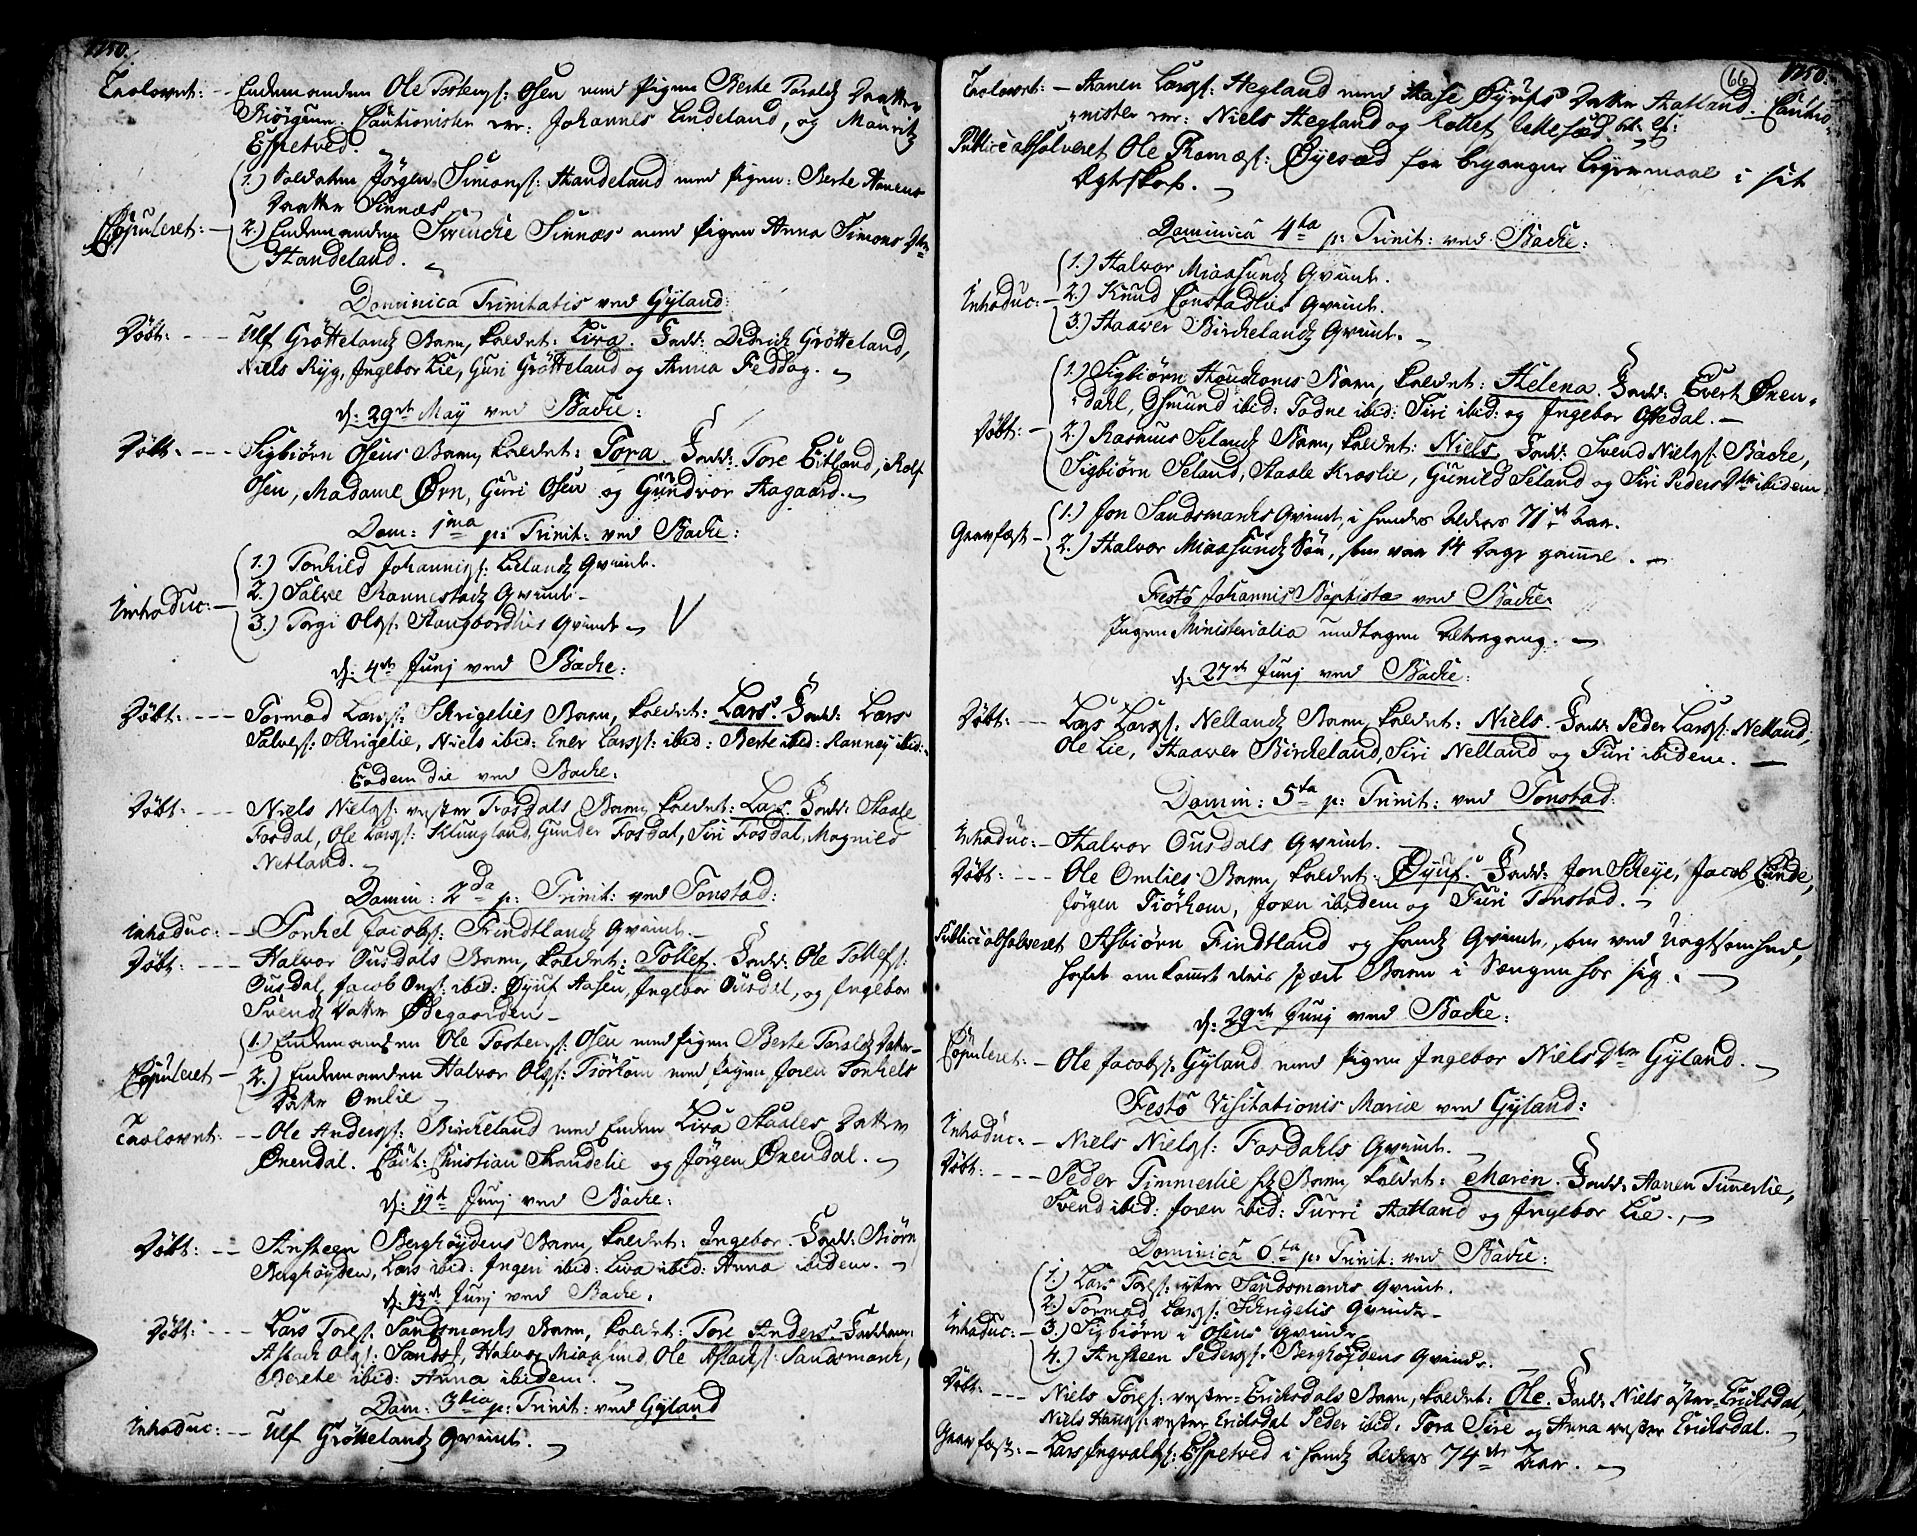 1750.
Trolovet: – Enchemanden Ole Torkengs: Osen med Pigen Berte Taralds Daatter
Biörgum. Cautionister var: Johannes Lindeland, og Mauritz
Espetved.
1.) Soldaten Jörgen Simons: Handeland med Pigen: Berte Hanens
Daatter Sinnæs
Copuleret: – 2.) Enchemanden Svenche Sinnæs med Pigen Anna Simons Dtr
Handeland.
Dominica Trinitatis ved Gyland:
Döbt: – Ulf Grötteland Barn, kaldet: Liva. Fadd: Didrich Grötteland,
Niels Ryg, Ingebor Lie, Guri Grötteland og Anna Feddag.
d: 29de May ved Backe:
Döbt: – Sigbiörn Osens Barn, kaldet: Tora. Fadd: Tore Eitland, Rolf
Osen, Madame Ørn, Guri Osen og Gundvor Aagaard.
Dom: 1ma p: Trinit: ved Backe:
1.) Torkild Johannis: Lieland Qvinde.
Introduc: – 2.) Salve Rannestad Qvinde –
3.) Torgi Ols: Haugbordlies Qvinde
d: 4de Junj ved Backe:
Döbt: – Tormod Lars: Schrigelies Barn, kaldet: Lars. Fadd: Lars
Salves: Schrigelie, Niels ibid: Ener Lars: ibid: Berte ibid: Ranney ibid:
Eodem die ved Backe:
Döbt: – Niels Niels: vester Fosdals Barn, kaldet: Lars. Fadd: Staale
Fosdal, Ole Lars: Klungland, Gunder Fosdal, Siri Fosdal, Magnild
Netland.
Domin: 2da p: Trinit: ved Tonstad:
Introduc: – Tonkel Jacobs: Findtland Qvinde.
Döbt: – Halvor Ousdals Barn, kaldet: Tollef. Fadd: Ole Tollefs:
Ousdal, Jacob Ons: ibid: Øyuf Aasen, Ingebor Ousdal, og Ingebor
Svends Datter Ødegaarden –
1.) Enchemanden Ole Tostens: Osen med Pigen Berte Taralds Dater –
Copuleret – 2.) Enchemanden Halvor Ols: Tiörhom med Pigen Joren Tonkels
Datter Omlie
Trolovet: – Ole Anders: Birckeland med Enchen Liva Staales Datter
Ønendal. Caut: Christian Skandelie og Jörgen Ønendal.
d: 11te Junj ved Backe:
Döbt: – Ansteen Berghöydens Barn, kaldet: Ingebor. Fadd: Biörn
Berghöyden, Lars ibid: Ingeri ibid: Liva ibid: Anna ibidem.
d: 13de Junj ved Backe:
Döbt: – Lars Tores: Sandsmarks Barn, kaldet: Tore Anders. Fadderne:
Aslach Ols: Sands:, Halvor Miaasund, Ole Aslachs: Sandsmark,
Berete ibid: Anna ibidem.
Dom: 3tia p: Trinit: ved Gyland
Introduc: – Ulf Grötteland Qvinde.
66
1750.
Trolovet: – Hanen Lars: Hegland med Aase Øyufs Datter Hatland. Cautio-
nister var: Niels Hegland og
Publicè absolveret Ole Thomæs: Øyesæd for begangen Leyermaal i sit
Ægteskab.
Dominica 4ta p: Trinit: ved Backe:
1.) Halvor Miaasund Qvinde.
Introduc: – 2.) Knud Constadlies Qvinde.
3.) Haaver Birckeland Qvinde.
1.) Sigbiörn Houchoms Barn, kaldet: Helena. Fadd: Evert Ønen-
dahl, Osmund ibid: Todne ibid: Siri ibid: og Ingebor Ossedal. –
Döbt: – 2.) Rasmus Seland Barn, kaldet: Niels. Fadd: Svend Niels: Backe,
Sigbiörn Seland, Staale Kroslie, Gunild Seland og Siri Peders Dtr ibidem.
Gravfæst – 1.) Jon Sandsmarks Qvinde, i hendes Alders 71de Aar.
2.) Halvor Miaasunds Sön, som var 14 Dage gammel.
Festo Johannis Baptistæ ved Backe:
Ingen Ministerialia undtagen Altergang.
d: 27de Junj ved Backe:
Döbt: – Lars Lars: Nelland Barn, kaldet: Niels. Fadd: Peder Lars: Nelland,
Ole Lie, Haaver Birckeland, Siri Nelland og Turi ibidem.
Domin: 5ta p: Trinit: ved Tonstad:
Introduc: – Halvor Ousdals Qvinde.
Döbt: – Ole Omlies Barn, kaldet: Øyuf. Fadd: Jon Scheye, Jacob Lunde,
Jörgen Tiörhom, Joren ibidem og Turi Tonstad.
Publicè absolveret Asbiörn Findtland og hands Qvinde, som ved Uagtsomhed,
hafde omkommet deris spæde Barn i Sængen hos sig.
d: 29de Junj ved Backe:
Copuleret: – Ole Jacobs: Gyland med Pigen Ingebor Niels Dtr Gyland.
Festo Visitationis Mariæ ved Gyland:
Introduc: – Niels Niels: Fosdahls Qvinde.
Döbt: – Peder Timmerlie hs Barn, kaldet: Maren. Fadd: Hanen Timerlie,
Svend ibid: Joren ibid: Turri Hatland og Ingebor Lie.
Dominica 6ta p: Trinit: ved Backe:
1.) Lars Tores: öster Sandsmarks Qvinde.
2.) Tormod Lars: Schrigelis Qvinde –
Introduc: – 3.) Sigbiörn i Osens Qvinde
4.) Ansteen Peders: Berghöydens Qvinde.
Döbt: – Niels Tores: vester-Ericksdals Barn, kaldet: Ole. Fadd: Niels öster-Ericksdal,
Niels Hans: vester Ericksdal Peder ibid: Tora Sire og Anna vester Ericksdal.
Gravfæst: – Lars Ingvalds: Espetved i hands Alders 74de Aar.